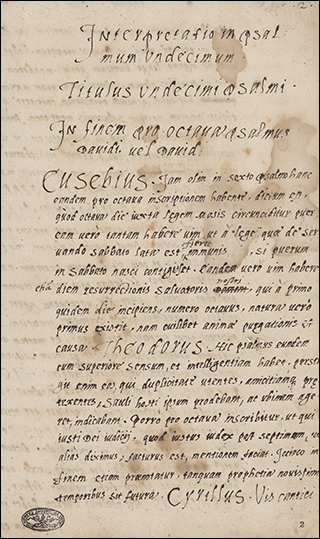 Interpretatio in psal
mum undecimum
Titulus undecimi psalmi.
In finem pro octava psalmus
Davidi vel David.
Eusebius. Iam olim in sexto psalmo hanc
eandem pro octava inscriptionem habente, dictum est,
quod octava die iuxta legem Mosis circumciditur puer
eam vero tantam habere vim ut a lege quae de ser
vando sabbato lata est fieret immunis, si puerum
in sabbato nasci contigisset. Eandem vero vim habere
etiam diem resurrectionis salvatoris nostri, qui a primo
quidem die incipiens, numero octavus, natura vero
primus existit, nam cuiuslibet animae purgationis est
causa. Theodorus. Hic psalmus eundem
cum superiore sensum, et intelligentiam habet, perstrin
git enim eos, qui duplicitate utentes, amicitiamque prae
texentes, Sauli hosti ipsum prodebant, ac ubinam age
ret, indicabant. Porro pro octava inscribitur, ut qui
iusti Dei iudicii, quod iustus iudex post septimum, ut
alias diximus, facturus est, mentionem faciat.
finem etiam praenotatur, tanquam prophetia novissimis
temporibus sit futura. Cyrillus. Vis cantici
2